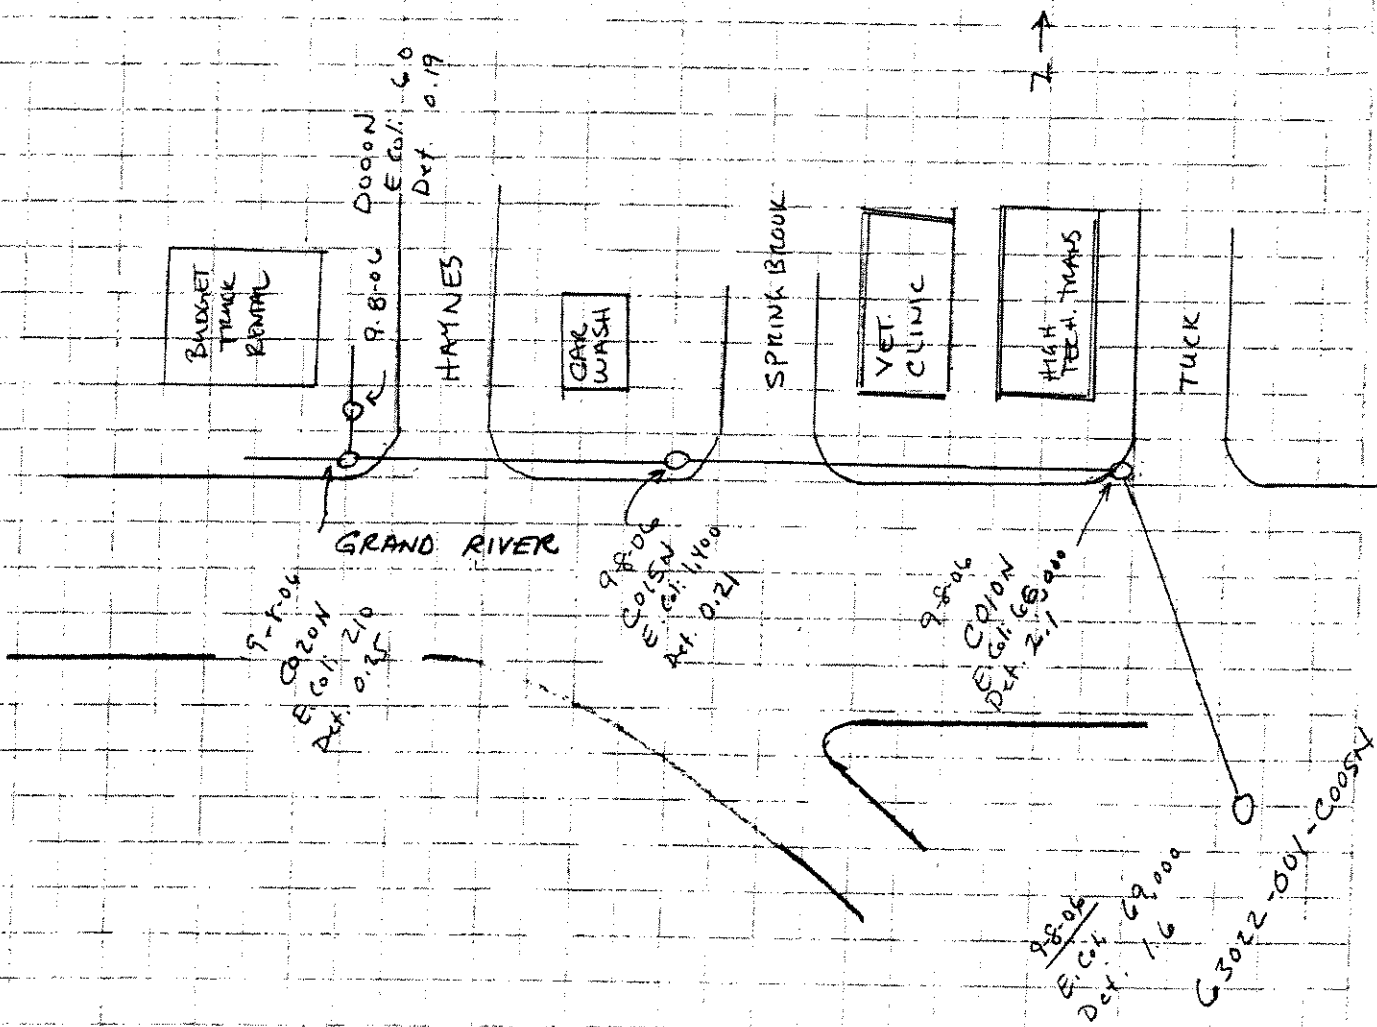 N
D000N
E Coli: 60
Det. 0.19
9-8-06
BUDGET
TRUCK
RENTAL
HAYNES
CAR
WASH
SPRING BROOK
VET.
CLINIC
HIGH
TECH. TRANS
TUCK
GRAND RIVER
9-8-06
C020N
E. Coli: 210
Det. 0.25
9-8-06
C015N
E. Coli: 1,400
Det. 0.21
9-8-06
C010N
E. Coli: 68,000
Det. 2.1
9-8-06
E. Coli 69,000
Det. 1.6
G3022-001-C005N